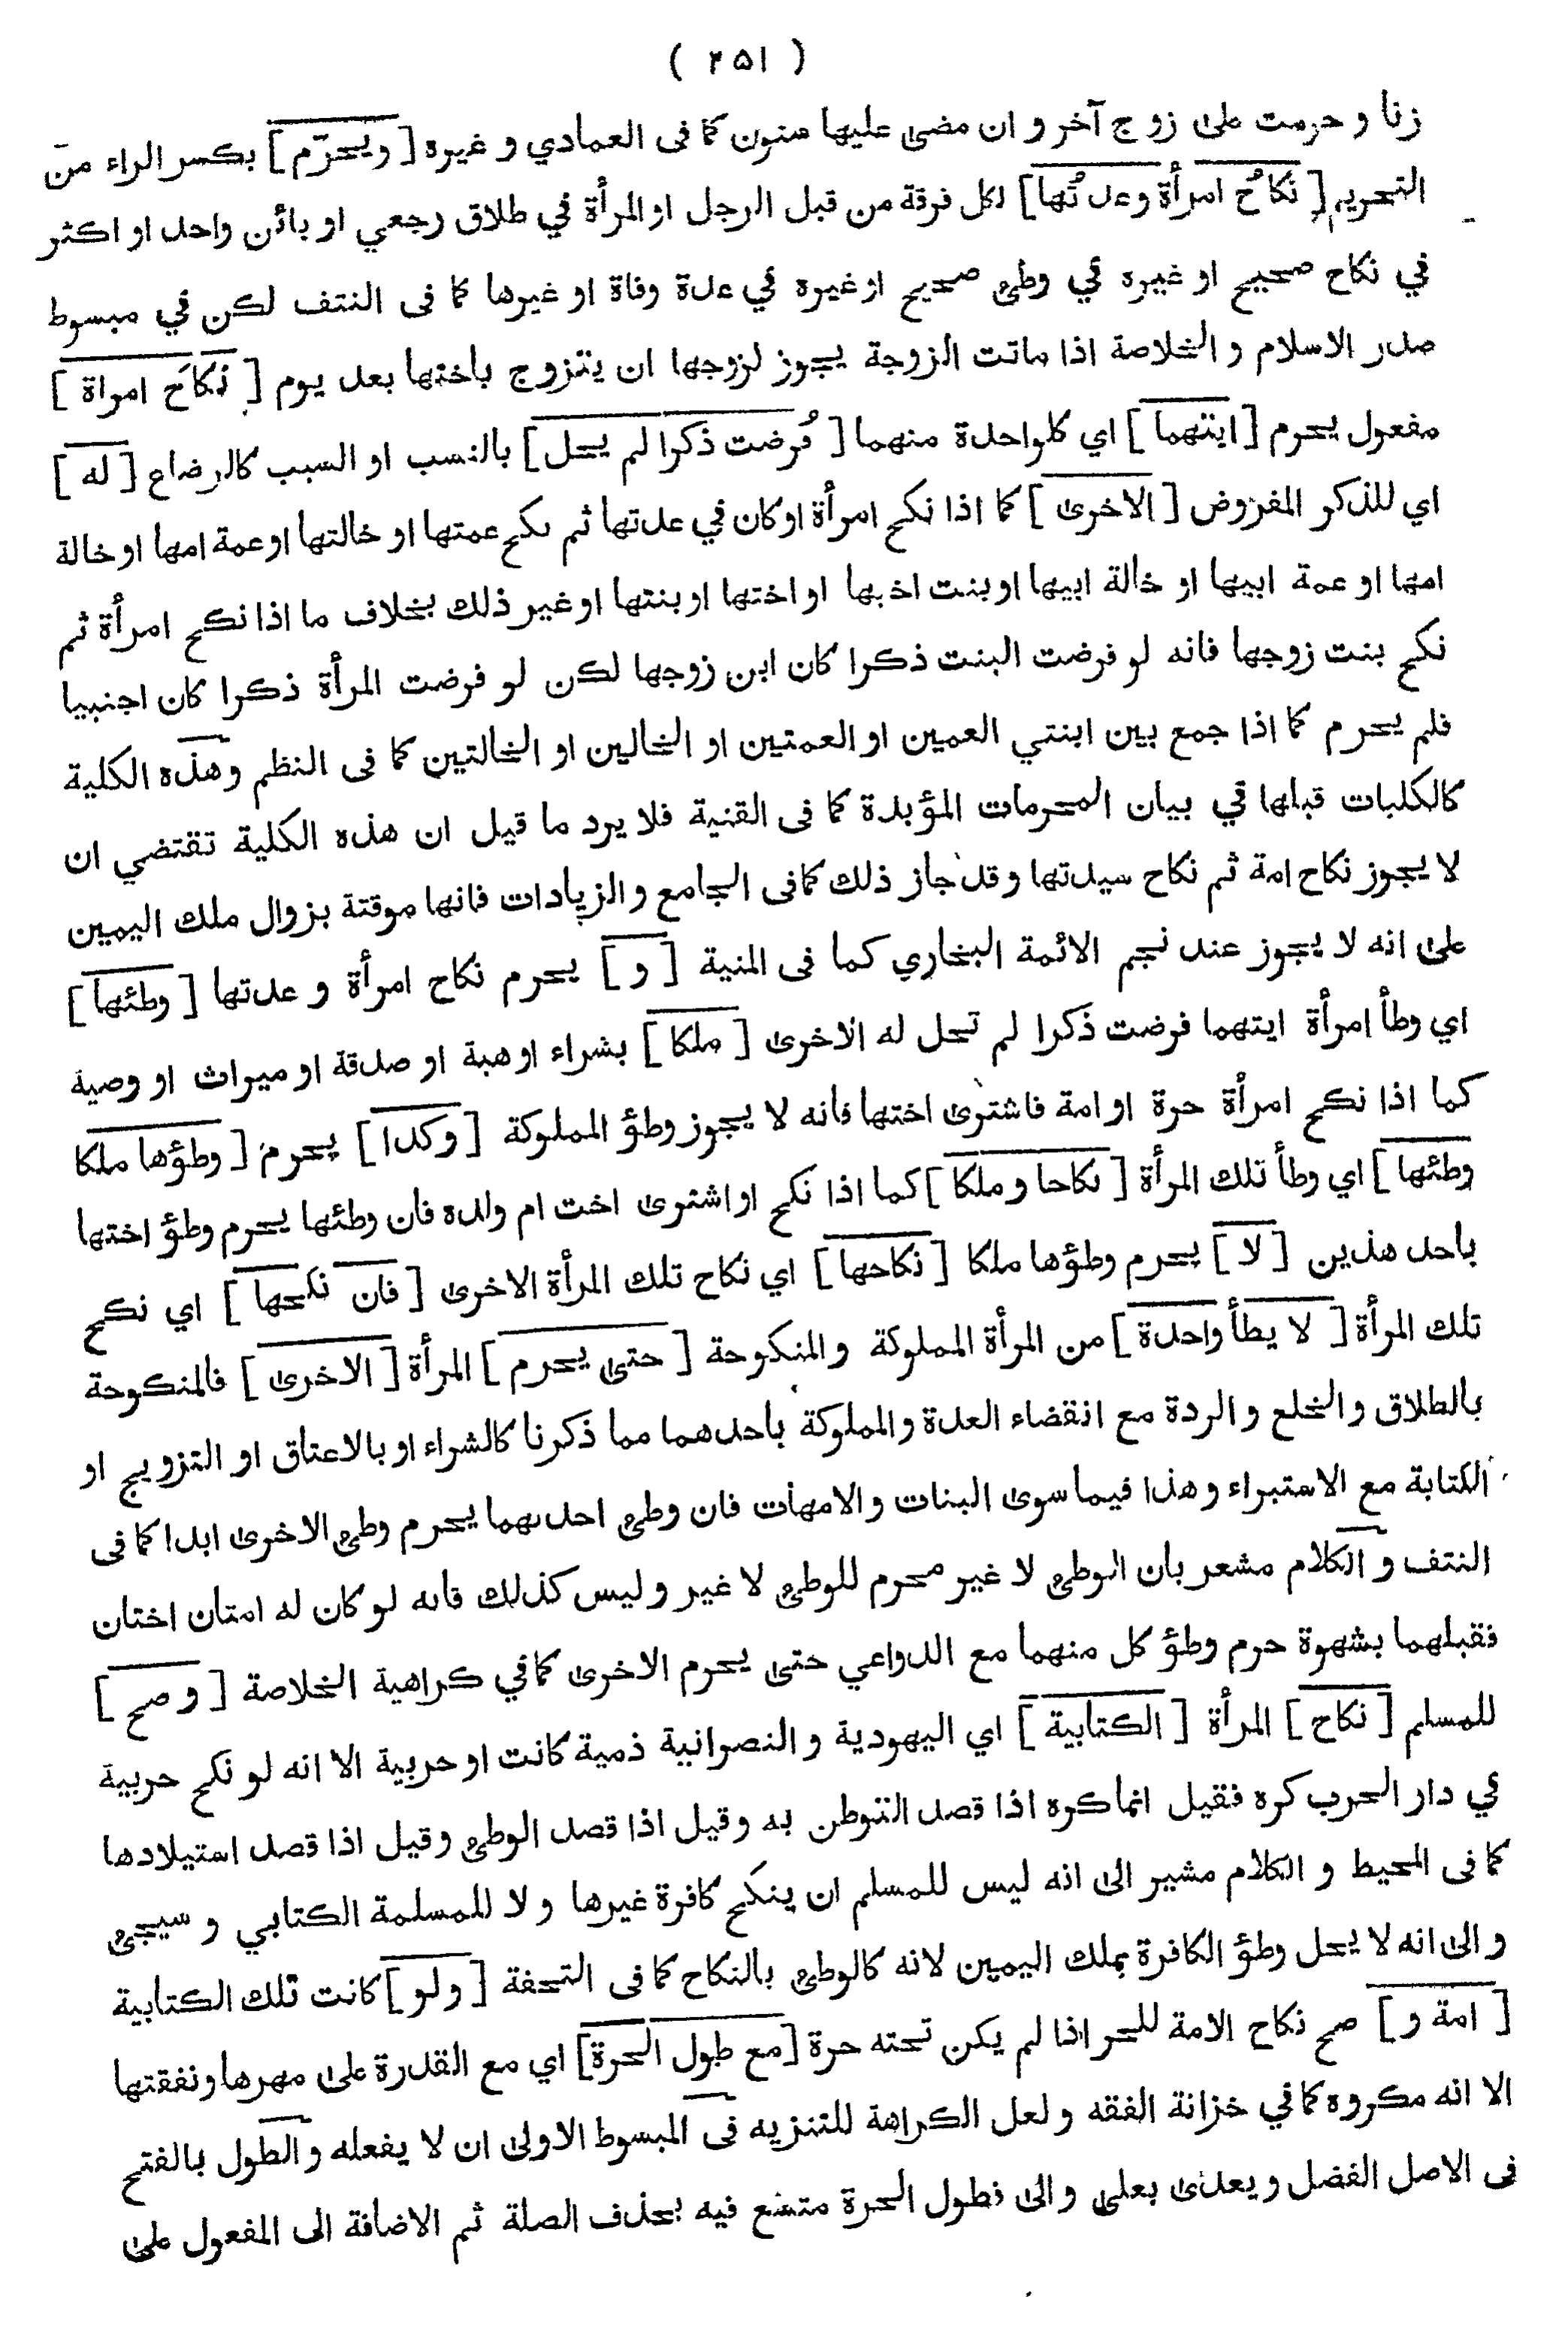 ( ٢٥١ )
زنا و حرمت على زوج آخر و ان مضى عليها سنون كما فى العمادي و غيره [ ويحرّم ] بكسر الراء من
التحريم [ نكاحُ امرأة وعدتُها ] لكل فرقة من قبل الرجل او المرأة في طلاق رجعي او بائن واحد او اكثر
في نكاح صحيح او غيره في وطئ صحيح او غيره في عدة وفاة او غيرها كما فى النتف لكن في مبسوط
صدر الاسلام و الخلاصة اذا ماتت الزوجة يجوز لزوجها ان يتزوج باختها بعد يوم [ نكاحَ امراة ]
مفعول يحرم [ ايتهما ] اي كلواحدة منهما [ فُرضت ذكرا لم يحل ] بالنسب او السبب كالرضاع [ له ]
اي للذكر المفروض [ الاخرى ] كما اذا نكح امرأة اوكان في عدتها ثم نكح عمتها او خالتها اوعمة امها او خالة
امها او عمة ابيها او خالة ابيها اوبنت اخيها او اختها اوبنتها اوغير ذلك بخلاف ما اذا نكح امرأة ثم
نكح بنت زوجها فانه لو فرضت البنت ذكرا كان ابن زوجها لكن لو فرضت المرأة ذكرا كان اجنبيا
فلم يحرم كما اذا جمع بين ابنتي العمين او العمتين او الخالين او الخالتين كما فى النظم وهذه الكلية
كالكليات قبلها في بيان المحرمات المؤبدة كما فى القنية فلا يرد ما قيل ان هذه الكلية تقتضي ان
لا يجوز نكاح امة ثم نكاح سيدتها وقد جاز ذلك كمافى الجامع و الزيادات فانها موقتة بزوال ملك اليمين
على انه لا يجوز عند نجم الائمة البخاري كما فى المنية [ و ] يحرم نكاح امرأة و عدتها [ وطئها ]
اي وطأ امرأة ايتهما فرضت ذكرا لم تحل له الاخرى [ ملكا ] بشراء اوهبة او صدقة او ميراث او وصية
كما اذا نكح امرأة حرة او امة فاشترى اختها فانه لا يجوز وطؤ المملوكة [ وكذا ] يحرم [ وطؤها ملكا
وطئها ] اي وطأ تلك المرأة [ نكاحا و ملكا ] كما اذا نكح او اشترى اخت ام ولده فان وطئها يحرم وطؤ اختها
باحد هذين [ لا ] يحرم وطؤها ملكا [ نكاحها ] اي نكاح تلك المرأة الاخرى [ فان نكحها ] اي نكح
تلك المرأة [ لا يطأ واحدة ] من المرأة المملوكة والمنكوحة [ حتى يحرم ] المرأة [ الاخرى ] فالمنكوحة
بالطلاق و الخلع و الردة مع انقضاء العدة و المملوكة باحدهما مما ذكرنا كالشراء او بالاعتاق او التزويج او
الكتابة مع الاستبراء وهذا فيما سوى البنات والامهات فان وطئ احدىهما يحرم وطئ الاخرى ابدا كما فى
النتف و الكلام مشعر بان الوطئ لا غير محرم للوطئ لا غير وليس كذلك فانه لو كان له امتان اختان
فقبلهما بشهوة حرم وطؤ كل منهما مع الدواعي حتى يحرم الاخرى كمافي كراهية الخلاصة [ و صح ]
للمسلم [ نكاح ] المرأة [ الكتابية ] اي اليهودية و النصرانية ذمية كانت او حربية الا انه لو نكح حربية
في دار الحرب كره فقيل انما كره اذا قصد التوطن به وقيل اذا قصد الوطئ وقيل اذا قصد استيلادها
كما فى المحيط و الكلام مشير الى انه ليس للمسلم ان ينكح كافرة غيرها و لا للمسلمة الكتابي و سيجئ
و الى انه لا يحل وطؤ الكافرة بملك اليمين لانه كالوطئ بالنكاح كما فى التحفة [ ولو ] كانت تلك الكتابية
[ امة و ] صح نكاح الامة للحر اذا لم يكن تحته حرة [ مع طول الحرة ] اي مع القدرة على مهرها ونفقتها
الا انه مكروه كمافي خزانة الفقه و لعل الكراهة للتنزيه فى المبسوط الاولى ان لا يفعله و الطول بالفتح
فى الاصل الفضل ويعدى بعلى و الى فطول الحرة متسع فيه بحذف الصلة ثم الاضافة الى المفعول على